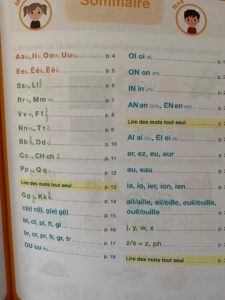 Sommaire
Aaɑ, Iii, Ooo, Uuu p. 4
Eee, Éé, Èè p. 5
Ss, Ll p. 6
Rr, Mm p. 7
Vv, Ff p. 8
Nn, Tt p. 9
Bb, Dd p. 10
Cc, CH ch p. 11
Pp, Qq p. 12
Lire des mots tout seul p. 13
Gg, Kk p. 14
c(e) c(i), g(e) g(i) p. 15
bl, cl, pl, fl, gl p. 16
br, cr, pr, fr, gr, tr p. 17
OU ou p. 18
OI oi
ON on
IN in
AN an, EN en
Lire des mots tout seul
AI ai, EI ei
er, ez, eu, eur
au, eau
ia, io, ier, ion, ien
ail/aille, eil/eille, euil/euille,
ouil/ouille
j, y, w, x
z/s = z, ph
Lire des mots tout seul